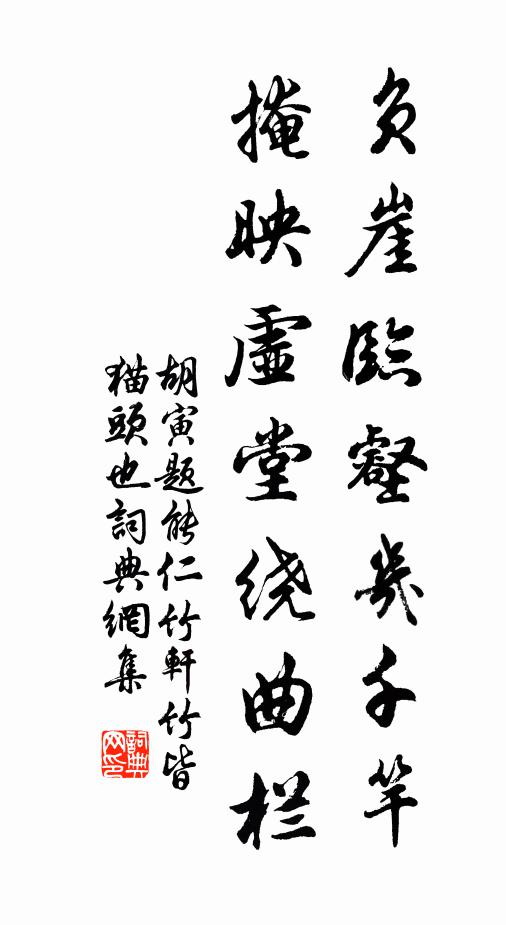 负崖臨壑幾千竿
掩映虛堂绕曲栏
胡寅题能仁竹軒竹皆
猫頭也詞典網集
詞典网印